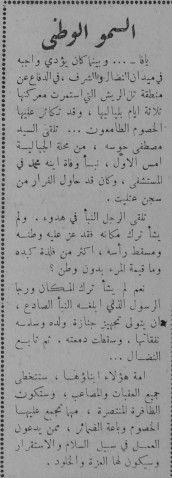 السمو الوطني
يافا ـ ... وبينما كان يؤدي واجبه
في ميدان النضال والشرف ، في الدفاع عن
منطقة تل الريش التي استمرت معركتها
ثلاثة ايام بلياليها ، وقد تكاثر عليها
الخصوم الطامعون ... تلقى السيد
مصطفى حوسه ، من محلة الجبالية
امس الاول ، نبأ وفاة ابنه محمد في
المستشفى ، وكان قد حاول الفرار من
سجن عتليت .
تلقى الرجل النبأ في هدوء . ولم
يشأ ترك مكانه فقد عز عليه وطنه
ومسقط رأسه ، اكثر من فلذة كبده
وما قيمة المرء بدون وطن ؟
نعم لم يشأ ترك المكان ورجا
الرسول الذي ابلغه النبأ الصادع ،
ان يتولى تجهيز جنازة ولده وسلمه
نفقاتها ، وسقطت دمعته . ثم تابع
النضال ...
امة هؤلاء ابناؤها ، ستتخطى
جميع العقبات والمصاعب ، وستكون
الظافرة المنتصرة ، مهما تجمع عليها
الخصوم وباعة الضمائر ، ممن يدعون
العمل في سبيل السلام والاستقرار
وسيكون لها العزة والخلود .